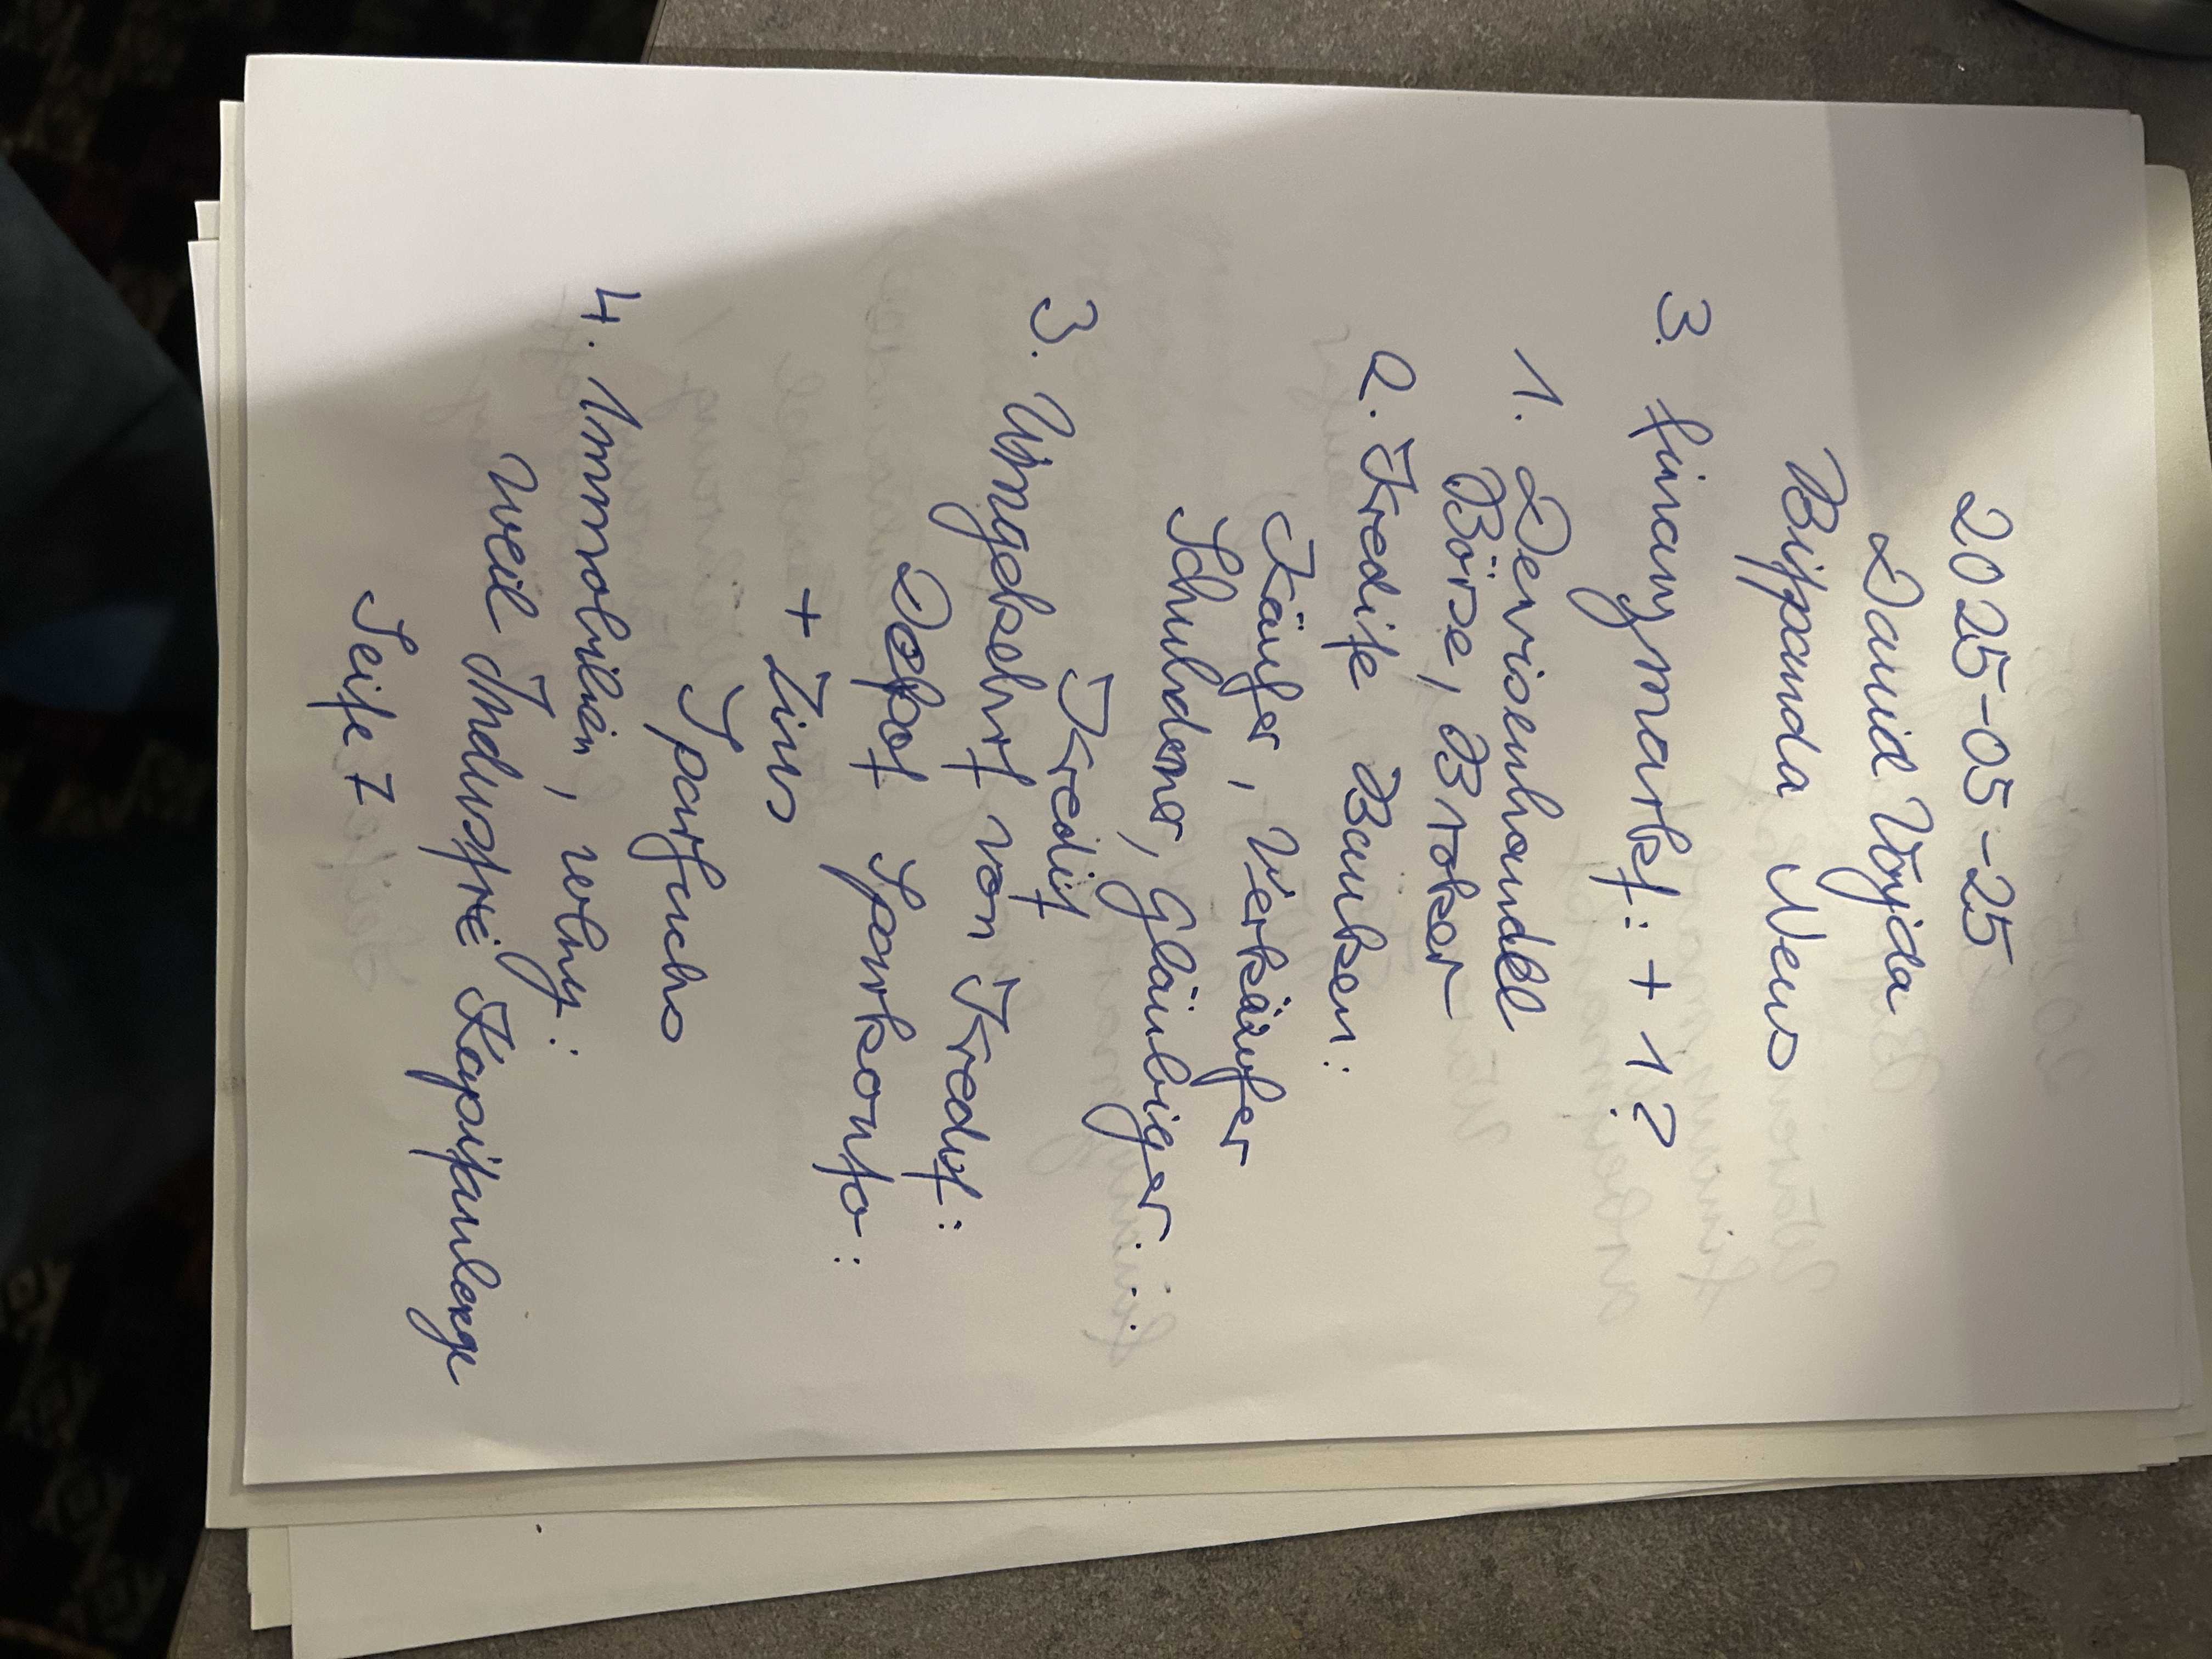 2025-05-25
David Vajda
Bitpanda News
3. Finanzmarkt: + 1?
1. Devisenhandel
Börse, Broker
2. Kredite, Banken:
Käufer, Verkäufer
Schuldner, Gläubiger:
Kredit
3. Umgekehrt von Kredit:
Depot Sparkonto:
+ Zins
Sparfuchs
4. Immobilien, wohn:
weil Industrie Kapitalanlage
Seite 7